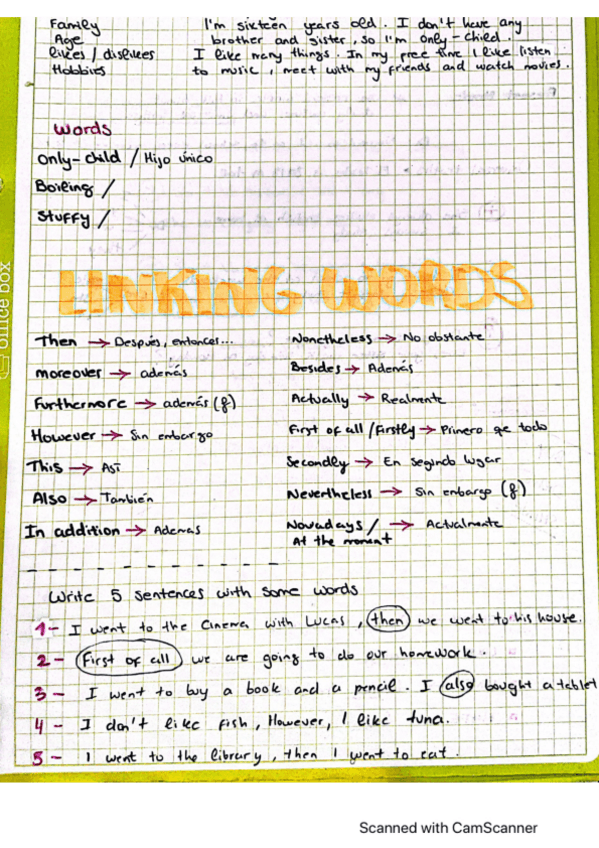 Family I'm sixteen years old. I don't have any
Age brother and sister, so I'm only-child.
likes / dislikes I like many things. In my free time I like listen
Hobbies to music, meet with my friends and watch movies.
words
Only-child / Hijo único
Boiling /
Stuffy /
office box
LINKING WORDS
Then → Después, entonces... Nonetheless → No obstante
moreover → además Besides → Además
Furthermore → además (f) Actually → Realmente
However → Sin embargo First of all / Firstly → Primero qe todo
This → Así Secondly → En segundo lugar
Also → También Nevertheless → Sin embargo (f)
In addition → Ademas Nowadays / → Actualmente
At the moment
Write 5 sentences with some words
1- I went to the cinema with Lucas, then we went to his house.
2- First of all we are going to do our homework.
3- I went to buy a book and a pencil. I also bought a tablet
4- I don't like fish, However, I like tuna.
5- I went to the library, then I went to eat.
Scanned with CamScanner